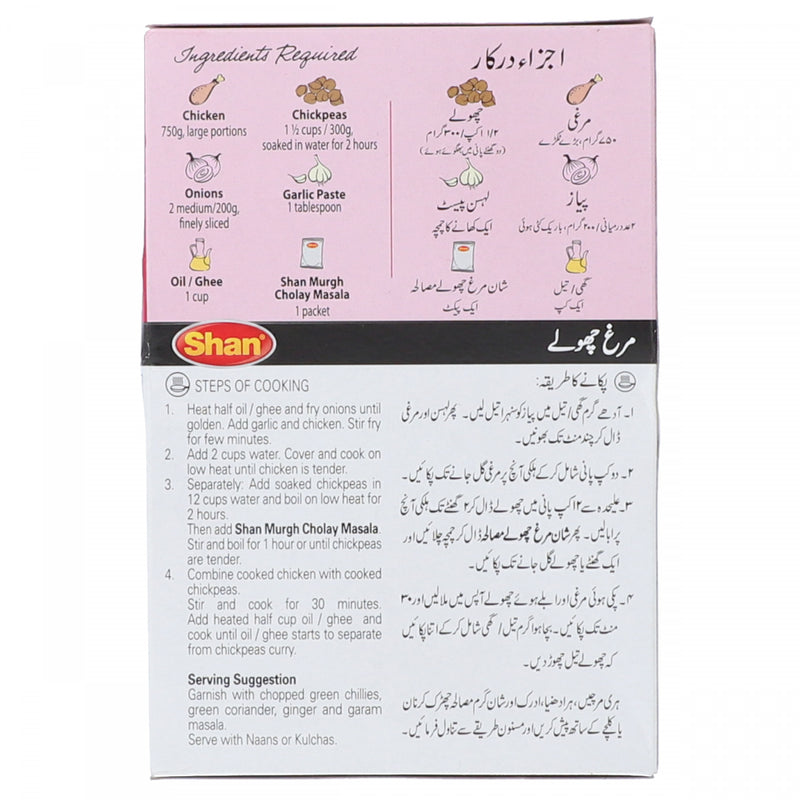 Ingredients Required
Chicken
750g, large portions
Chickpeas
1 ½ cups / 300g,
soaked in water for 2 hours
Onions
2 medium/200g,
finely sliced
Garlic Paste
1 tablespoon
Oil / Ghee
1 cup
Shan Murgh
Cholay Masala
1 packet
اجزاء درکار
مرغی
۷۵۰ گرام، بڑے ٹکڑے
چھولے
۱ ۱/۲ کپ / ۳۰۰ گرام
(دو گھنٹے پانی میں بھگوئے ہوئے)
پیاز
۲ عدد درمیانی / ۲۰۰ گرام، باریک کٹی ہوئی
لہسن پیسٹ
ایک کھانے کا چمچہ
گھی / تیل
ایک کپ
شان مرغ چھولے مصالحہ
ایک پیکٹ
Shan
مرغ چھولے
STEPS OF COOKING
1. Heat half oil / ghee and fry onions until
golden. Add garlic and chicken. Stir fry
for few minutes.
2. Add 2 cups water. Cover and cook on
low heat until chicken is tender.
3. Separately: Add soaked chickpeas in
12 cups water and boil on low heat for
2 hours.
Then add Shan Murgh Cholay Masala.
Stir and boil for 1 hour or until chickpeas
are tender.
4. Combine cooked chicken with cooked
chickpeas.
Stir and cook for 30 minutes.
Add heated half cup oil / ghee and
cook until oil / ghee starts to separate
from chickpeas curry.
Serving Suggestion
Garnish with chopped green chillies,
green coriander, ginger and garam
masala.
Serve with Naans or Kulchas.
پکانے کا طریقہ:
۱۔ آدھے گرم گھی / تیل میں پیاز کو سنہرا تیل لیں۔ پھر لہسن اور مرغی
ڈال کر چند منٹ تک بھونیں۔
۲۔ دو کپ پانی شامل کر کے ہلکی آنچ پر مرغی گل جانے تک پکائیں۔
۳۔ علیحدہ سے ۱۲ کپ پانی میں چھولے ڈال کر ۲ گھنٹے تک ہلکی آنچ
پر ابالیں۔ پھر شان مرغ چھولے مصالحہ ڈال کر چمچہ چلائیں اور
ایک گھنٹے یا چھولے گل جانے تک پکائیں۔
۴۔ پکی ہوئی مرغی اور ابلے ہوئے چھولے آپس میں ملا لیں اور ۳۰
منٹ تک پکائیں۔ بچا ہوا گرم تیل / گھی شامل کر کے اتنا پکائیں
کہ چھولے تیل چھوڑ دیں۔
ہری مرچیں، ہرا دھنیا، ادرک اور شان گرم مصالحہ چھڑک کر نان
یا کلچے کے ساتھ پیش کریں اور مسنون طریقے سے تناول فرمائیں۔